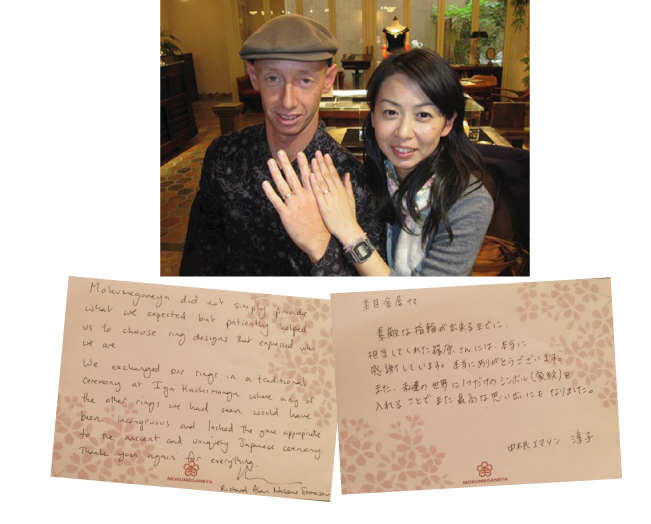 Mokumeganeya did not simply provide
what we expected but patiently helped
us to choose ring designs that expressed who
we are
We exchanged our rings in a traditional
ceremony at Iga Hachimangu where any of
the other rings we had seen would have
been incongruous and lacked the grave appropriate
to the ancient and uniquely Japanese ceremony.
Thank you again for everything.
Richard Alan
MOKUMEGANEYA
杢目金屋さま
素敵な指輪が出来るまでに、
担当してくれた篠原さんには、本当に
感謝しています。本当にありがとうございます。
また、私達の世界に1つだけのシンボル(家紋)を
入れることでまた最高な思い出にもなりました。
エマソン 淳子
MOKUMEGANEYA